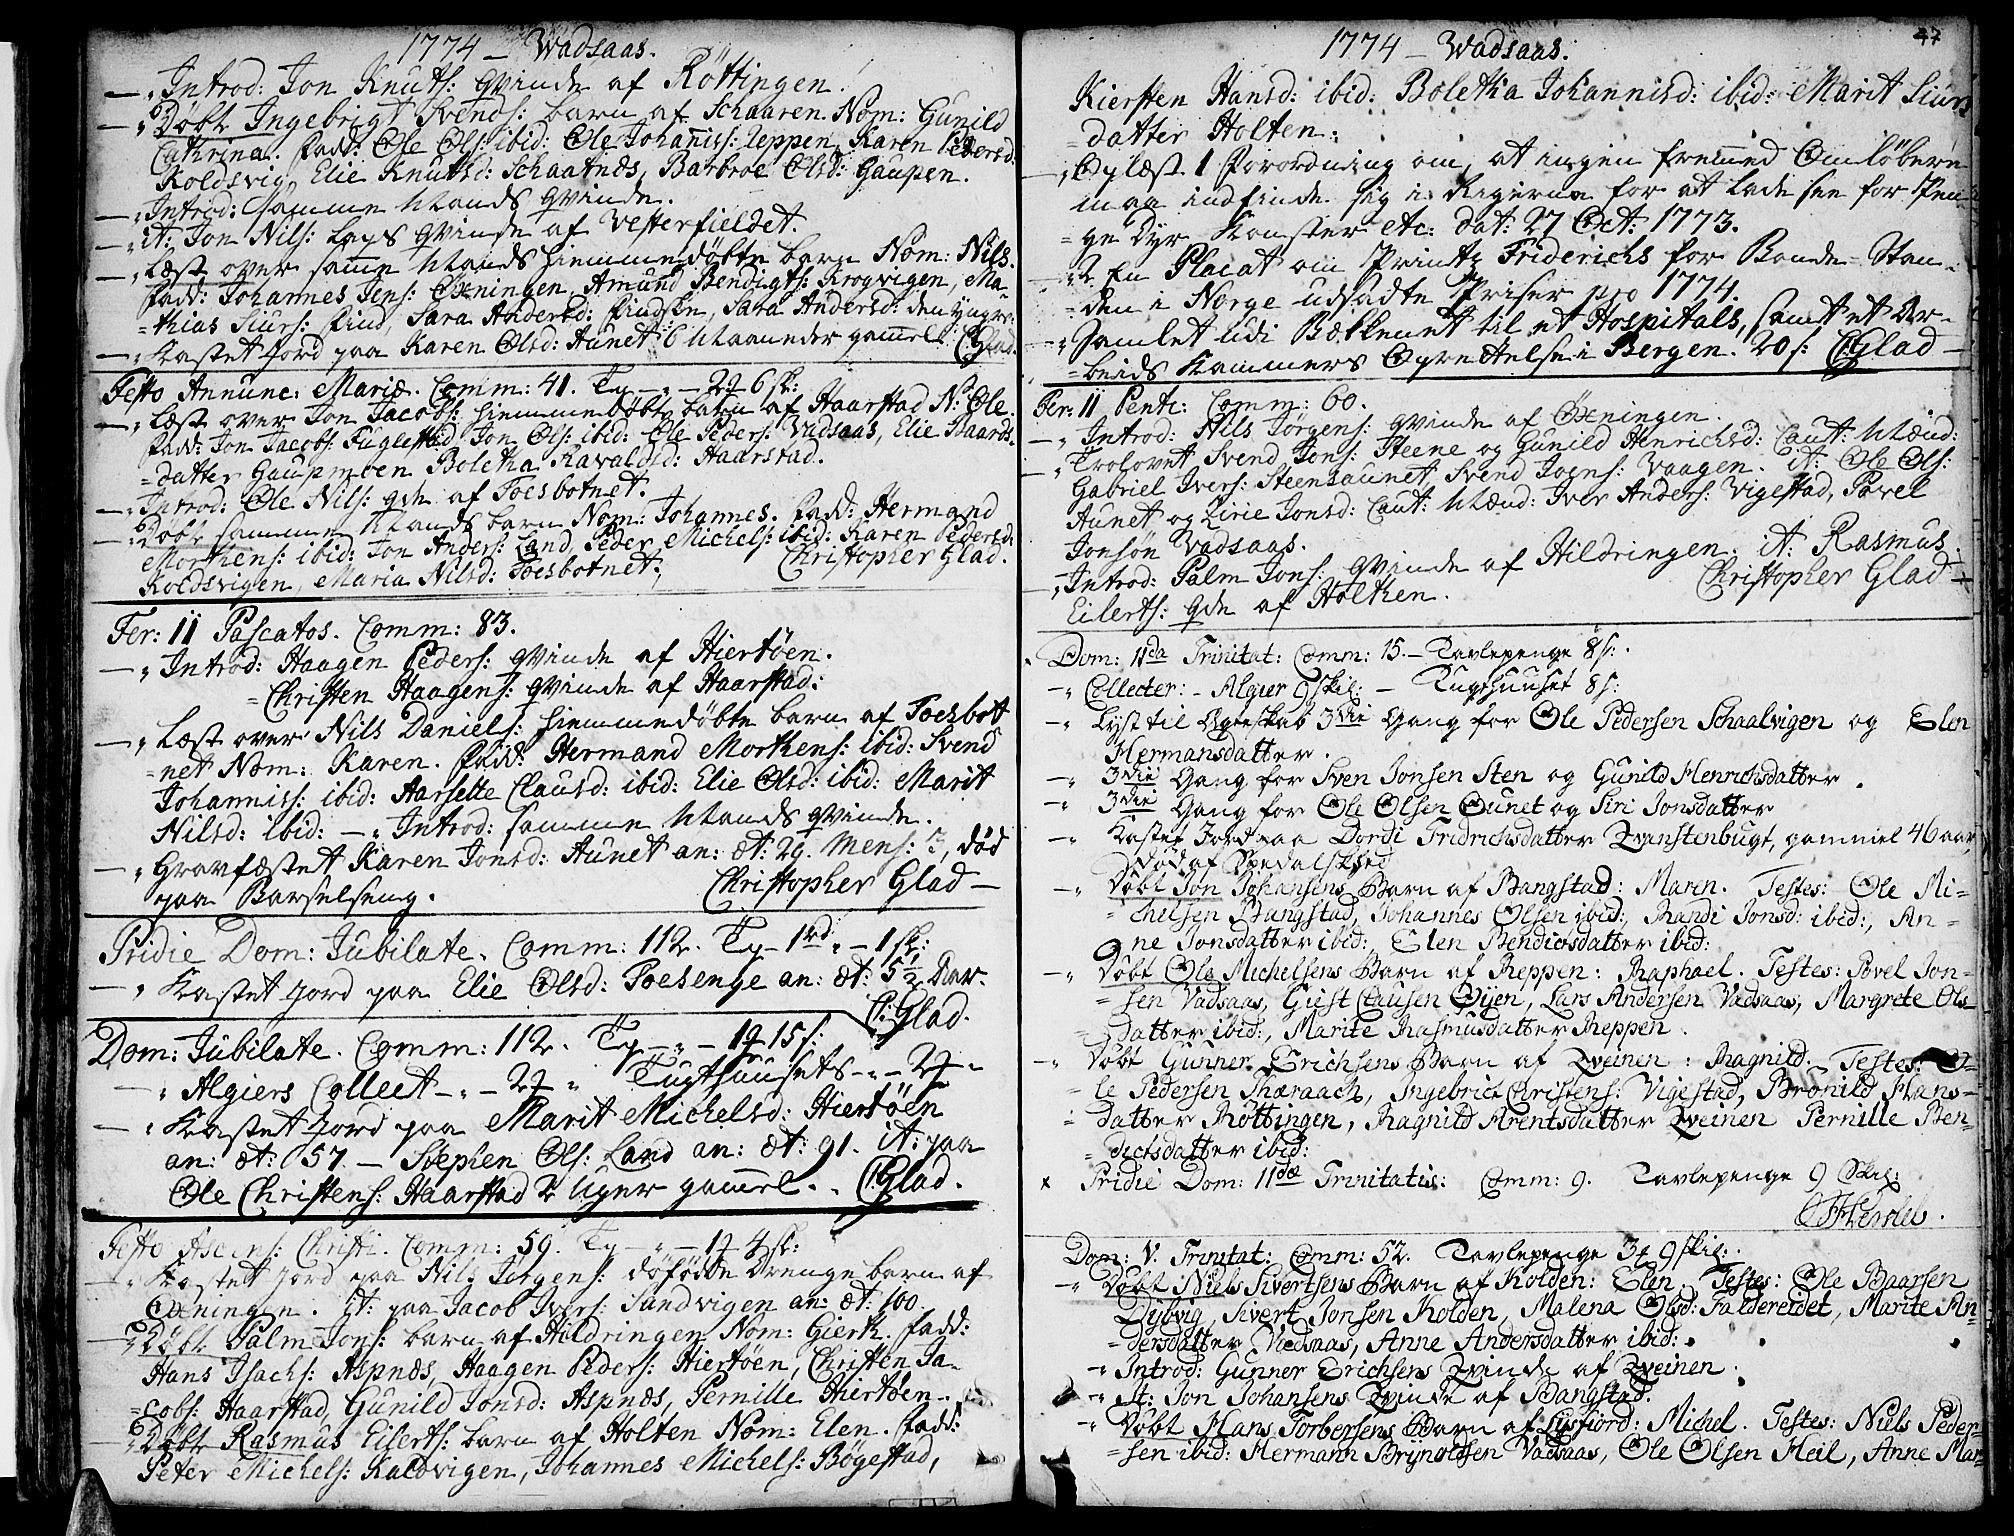 1774 – Wadsaas.
– „ Introd: Jon Knuts: qvinde af Röttingen.
– „ Döbt Ingebrigt Svends: barn af Schaaren Nom: Gunild
Cathrina. Fadd: Ole Ols: ibid: Ole Johaniss: Reppen, Karen Pedersd:
Koldsvig, Elie Knutsd: Schaatnæs, Barbroe Olsd: Gaupen.
– „ Introd: samme Mands qvinde.
– „ it: Jon Nils: Laps qvinde af Vesterfieldet.
– „ Læst over samme Mands hiemmedöbte barn Nom: Nils.
Fadd: Johannes Jens: Oxningen, Amund Bendigts: Krogvigen, Ma-
=thias Siurs: Find, Sara Andersd: Findsken, Sara Andersd: den yngre.
– „ Kastet Jord paa Karen Olsd: Aunet 6 Maaneder gammel. CGlad.
Festo Annunc: Mariæ. Comm: 41. Tp – „ – 2 6 sk:
– „ Læst over Jon Jacobs: hiemmedöbte barn af Haarstad N: Ole.
Fadd: Jon Jacobs: Fuglestad Jon Ols: ibid: Ole Peders: Vadsaas, Elie Baards-
=datter Gaupmoen Boletha Kavaldsd: Haarstad.
– „ Introd: Ole Nils: qde af Foesbotnet.
– „ Döbt samme Mands barn Nom: Johannes. Fadd: Hermand
Morthens: ibid: Jon Anders: Land, Peder Michels: ibid: Karen Pedersd:
Koldsvigen, Maria Nilsd: Foesbotnet. Christopher Glad.
Fer: II Pascatos. Comm: 83.
– „ Introd: Haagen Peders: qvinde af Hiertöen.
= Christen Haagens: qvinde af Haarstad:
– „ Læst over Nils Daniels: hiemmedöbte barn af Foesbot
=net Nom: Karen. Fadd: Hermand Morthens: ibid: Svend
Johanniss: ibid: Aarsette Clausd: ibid: Elie Olsd: ibid: Marit
Nilsd: ibid: – „ Introd: samme Mands qvinde.
– „ Gravfæstet Karen Jonsd: Aunet an: æt: 29. Mens: 3, död
paa Barselseng. Christopher Glad –
Pridie Dom: Jubilate. Comm: 112. Tp – 1 – 1 sk:
– „ Kastet Jord paa Elie Olsd: Foesenge an: æt: 5½ Dar.
C: Glad.
Dom: Jubilate. Comm: 112. Tp – „ – 1 15 s:
– „ Algiers Collect – „ – 2 „ Tugthuusets – „ – 2 „
– „ Kastet Jord paa Marit Michelsd: Hiertöen
an: æt: 57. – Stephen Ols: Land an: æt: 91. it: paa
Ole Christens: Haarstad 2 Uger gammel. „ CGlad.
Festo Ascens: Christi. Comm: 59. Tp – „ – 1 4 sk:
– „ Kastet Jord paa Nils Jörgens: dödfödde Drenge barn af
Oxningen. it: paa Jacob Ivers: Sundvigen an: æt: 100.
– „ Döbt Palm Jons: barn af Hildringen Nom: Gierth. Fadd:
Hans Isachs: Aspnæs, Haagen Peders: Hiertöen, Christen Ja-
=cobs: Haarstad, Gunild Jonsd: Aspnæs, Pernille Hiertöen.
– „ Döbt Rasmus Eilerts: barn af Holten Nom: Elen. Fadd:
Peter Michels: Kaldvigen, Johannes Michels: Bögestad,
47
1774 – Wadsaas.
Kiersten Hansd: ibid: Boletha Johannisd: ibid: Marit Siurs
=datter Holten.
– „ Oplæst 1 Forordning om, at ingen fremmed Omløbere
maa indfinde sig i Rigerne for at lade see for Pen-
=ge Dyr Konster etc: dat: 27 Oct: 1773.
– „ 2 En Placat om Printz Friderichs for Bonde-Stan-
=den i Norge udsadte Priser pro 1774.
– „ Samlet udi Bækkenet til et Hospitals, samt et Ar-
=beids Kammers Oprettelse i Bergen. 20 s: CGlad –
Fer: II Pent: Comm: 60.
– „ Introd: Nils Jörgens: qvinde af Oxningen.
– „ Trolovet Svend Jons: Steene og Gunild Henrichsd: Caut: Mænd:
Gabriel Ivers: Steensaunet, Svend Joens: Vaagen. it: Ole Ols:
Aunet og Lirie Jonsd: Caut: Mænd: Iver Anders: Vigestad, Pavel
Jonsön Vadsaas.
– „ Introd: Palm Jons: qvinde af Hildringen. it: Rasmus
Eilerts: qde af Holthen. Christopher Glad –
Dom: IIda Trinitat: Comm: 15. – Tavlepenge 8 s:
– „ Collecter: – Algier 9 skil: – Tugthuuset 8 s:
– „ Lyst til Egteskab 3die Gang for Ole Pedersen Schaalvigen og Elen
Hermansdatter.
– „ 3die Gang for Sven Jonsen Sten og Gunild Henrichsdatter.
– „ 3die Gang for Ole Olsen Ounet og Siri Jonsdatter
– „ Kastet Jord paa Dordi Fridrichsdatter Qvanstenbugt, gammel 46 aar,
död af Spedalskhed
– „ Döbt Jon Johansens Barn af Bangstad: Maren. Testes: Ole Mi-
=chelsen Bangstad, Johannes Olsen ibid:, Randi Jonsd: ibid:, An-
=ne Jonsdatter ibid: Elen Bendicsdatter ibid:
– „ Döbt Ole Michelsens Barn af Reppen: Raphael. Testes: Povel Jon-
=sen Vadsaas, Giest Clausen Öijen, Lars Andersen Vadsaas, Margrete Ols-
=datter ibid:, Marite Rasmusdatter Reppen.
– „ Döbt Gunner Erichsens Barn af Qveinen: Ragnild. Testes: O-
=le Pedersen Skæraach, Ingebrict Christens: Vigestad, Brönild Hans-
=datter Röttingen, Ragnild Arentsdatter Qveinen Pernille Ben-
=dictsdatter ibid:
x Pridie Dom: IIdæ Trinitatis: Comm: 9. Tavlepenge 9 Skil:
Dom: V. Trinitat: Comm: 52. Tavlepenge 3 9 skil:
– „ Döbt Niels Sivertsens Barn af Kolden: Elen. Testes: Ole Baarsen
Dybvig, Sivert Jonsen Kolden, Malena Olsd: Faldereidet, Marite An-
=dersdatter Vedsaas, Anne Andersdatter ibid:
– „ Introd: Gunner Erichsens Qvinde af Qveinen.
– „ It: Jon Johansens Qvinde af Bangstad.
– „ Döbt Hans Torbersens Barn af Lysfiord: Michel. Testes: Niels Peder-
=sen ibid: Hermann Brynoldsen Vadsaas, Ole Olsen Heil, Anne Mar-